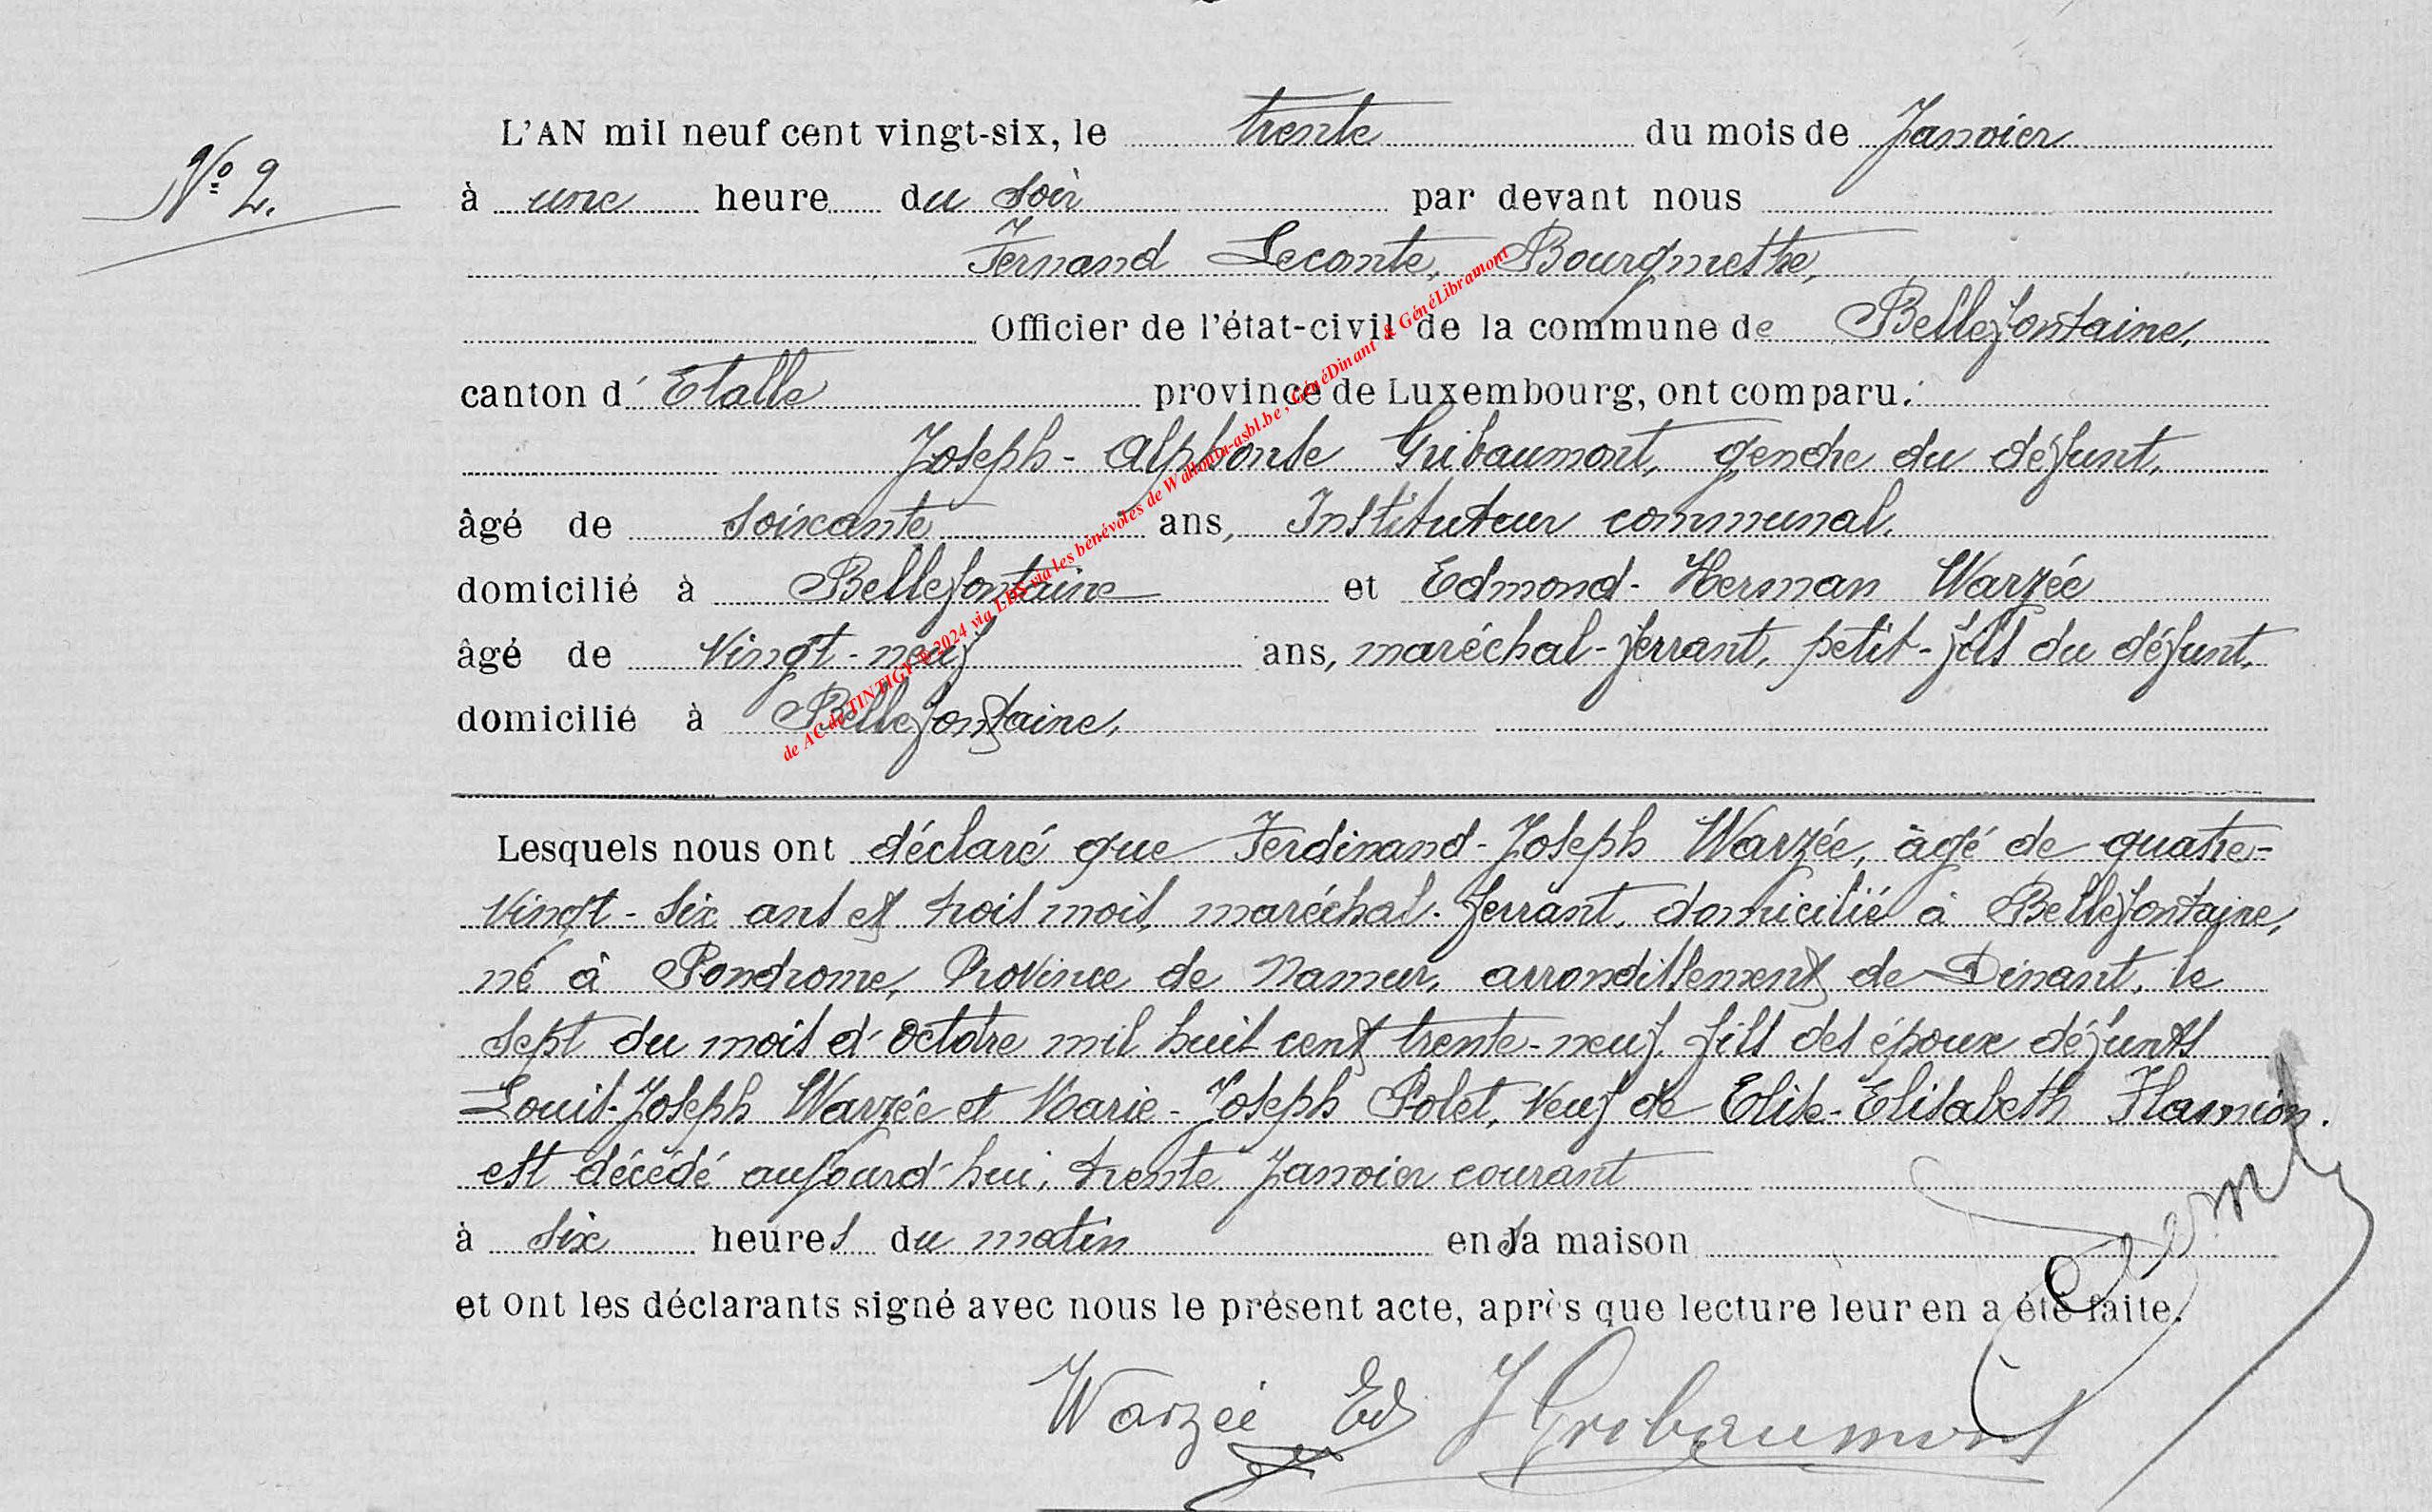 N° 2.
L'AN mil neuf cent vingt-six, le trente du mois de Janvier
à une heure du soir par devant nous
Fernand Lecomte, Bourgmestre,
Officier de l'état-civil de la commune de Bellefontaine,
canton d'Etalle province de Luxembourg, ont comparu :
Joseph-Alphonse Gribaumont, gendre du défunt,
âgé de soixante ans, Instituteur communal,
domicilié à Bellefontaine et Edmond-Herman Warzée
âgé de vingt-neuf ans, maréchal-ferrant, petit-fils du défunt,
domicilié à Bellefontaine,
de AC de TINTIGY © 2024 via LDS via les bénévoles de Wallonia-asbl.be , GénéDinant & GénéLibramont
Lesquels nous ont déclaré que Ferdinand-Joseph Warzée, âgé de quatre-
vingt-six ans et trois mois, maréchal-ferrant, domicilié à Bellefontaine,
né à Pondrome, Province de Namur, arrondissement de Dinant, le
sept du mois d'octobre mil huit cent trente-neuf, fils des époux défunts
Louis-Joseph Warzée et Marie-Joseph Polet, veuf de Elise-Elisabeth Flamion.
est décédé aujourd'hui, trente Janvier courant
à six heures du matin en sa maison
et ont les déclarants signé avec nous le présent acte, après que lecture leur en a été faite.
Warzée Ed J Gribaumont